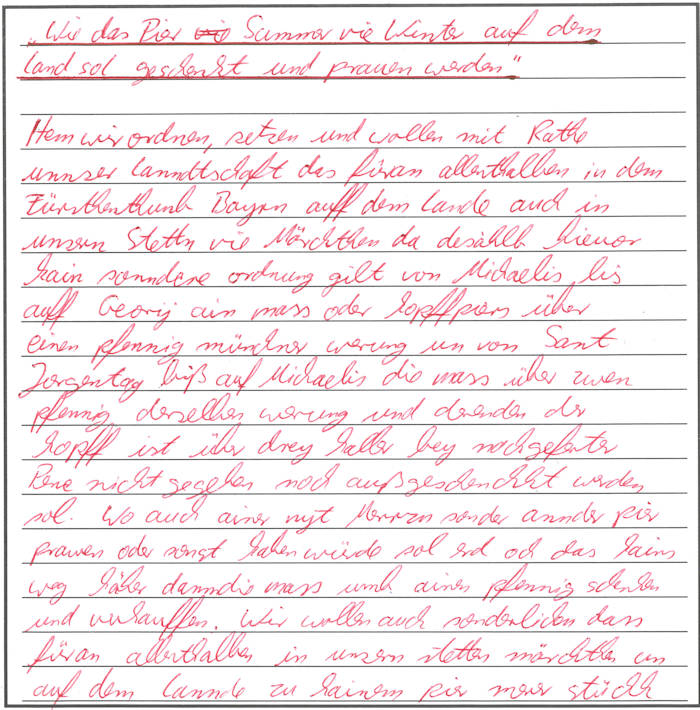 „Wie das Pier Summer wie Winter auf dem
Land sol geschenkt und prauen werden"
Item wir ordnen, setzen und wollen mit Rathe
unnser Lanndtschaft das füran allenthalben in dem
Fürsthenthumb Bayrn auff dem Lande auch in
unsern Stettn vie Märckthen da desshalb hieuor
kain sonndere ordnung gilt von Michaelis bis
auff Georij ain mass oder kopffpiers über
einen pfennig müncher werung un von Sant
Jorgentag biß auf Michaelis die mass über zwen
pfennig derselben werung und derenden der
kopff ist über drey haller bey nachgesetzter
Pene nicht gegeben noch außgeschenckht werden
sol. Wo auch ainer nyt Merrzn sonder annder pier
prauen oder sonst haben würde sol erd och das kains
weg häher dann die mass umb ainen pfennig schenken
und verkauffen. Wir wollen auch sonderlichen dass
füran allenthalben in unsern stetten märckthen un
auf dem Lannde zu kainem pier merer stückh